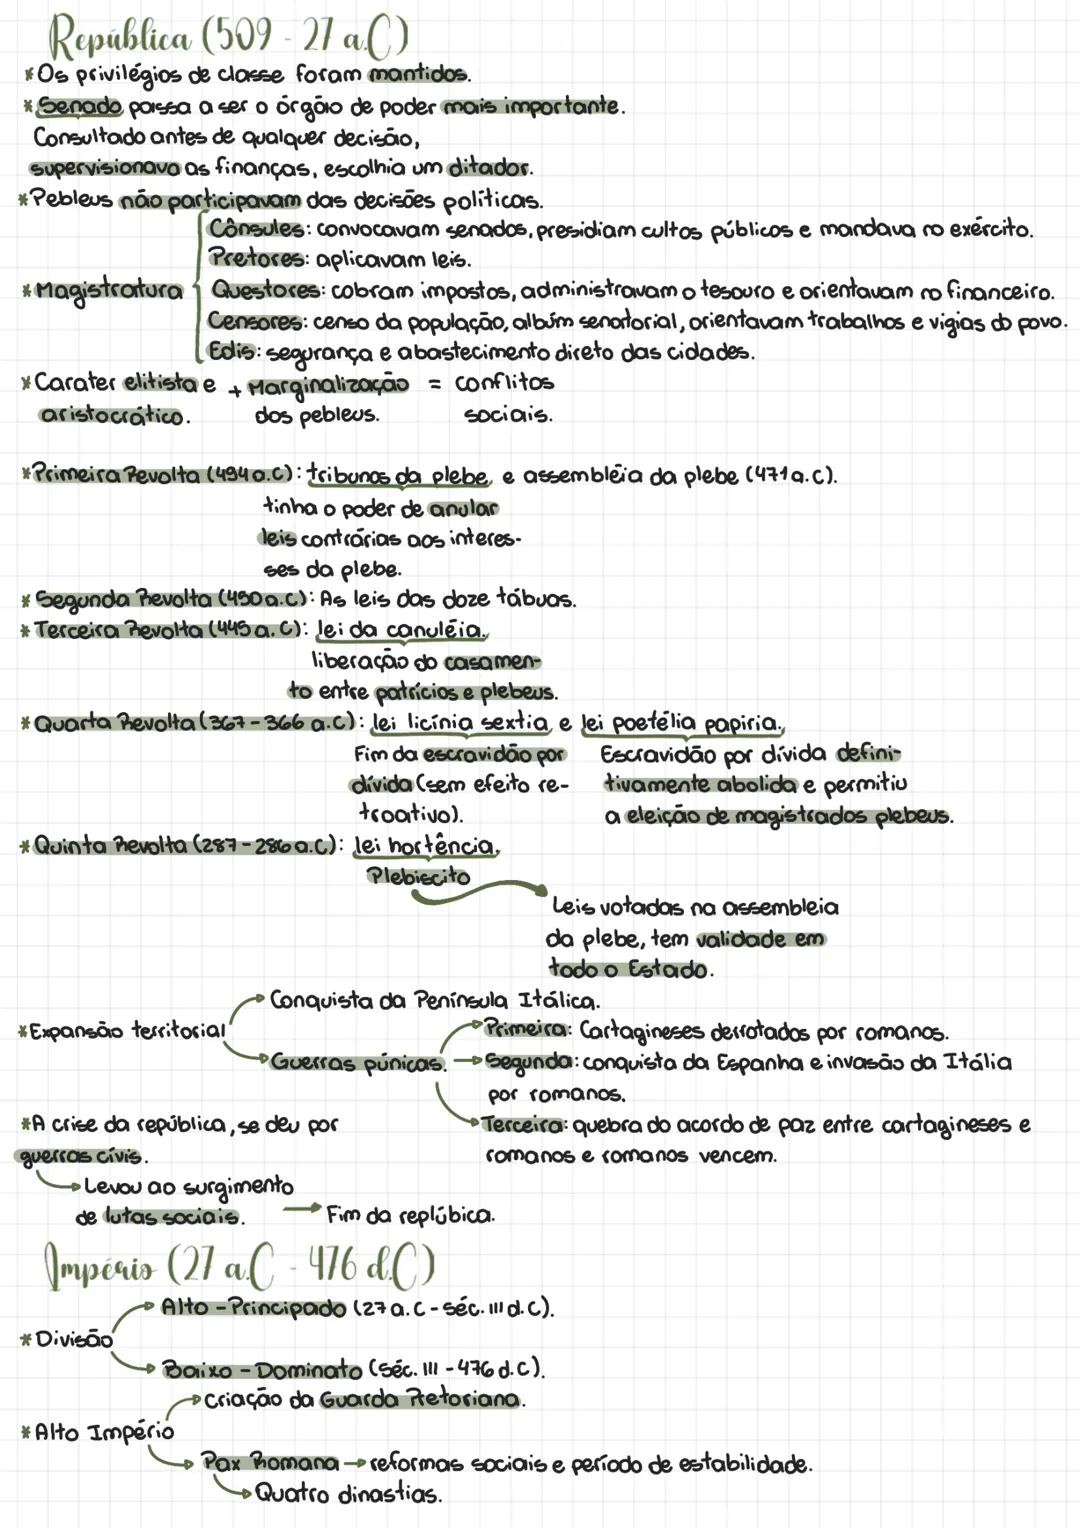 República (509 - 27 a.C)
*Os privilégios de classe foram mantidos.
*Senado passa a ser o órgão de poder mais importante.
Consultado antes de qualquer decisão,
supervisionava as finanças, escolhia um ditador.
*Pebleus não participavam das decisões políticas.
*Magistratura
Cônsules: convocavam senados, presidiam cultos públicos e mandava no exército.
Pretores: aplicavam leis.
Questores: cobram impostos, administravam o tesouro e orientavam no financeiro.
Censores: censo da população, albúm senatorial, orientavam trabalhos e vigias do povo.
Edis: segurança e abastecimento direto das cidades.
*Carater elitista e + Marginalização = conflitos
aristocrático. dos pebleus. sociais.
*Primeira Revolta (494 a.C): tribunos da plebe e assembléia da plebe (471 a.C).
tinha o poder de anular
leis contrárias aos interes-
ses da plebe.
*Segunda Revolta (450 a.C): As leis das doze tábuas.
*Terceira Revolta (445 a.C): lei da canuléia.
liberação do casamen-
to entre patrícios e plebeus.
*Quarta Revolta (367-366 a.C): lei licínia sextia e lei poetélia papiria.
Fim da escravidão por
dívida (sem efeito re-
troativo).
Escravidão por dívida defini-
tivamente abolida e permitiu
a eleição de magistrados plebeus.
*Quinta Revolta (287-286 a.C): lei hortência.
Plebiscito
Leis votadas na assembleia
da plebe, tem validade em
todo o Estado.
*Expansão territorial
Conquista da Península Itálica.
Guerras púnicas.
Primeira: Cartagineses derrotados por romanos.
Segunda: conquista da Espanha e invasão da Itália
por romanos.
Terceira: quebra do acordo de paz entre cartagineses e
romanos e romanos vencem.
*A crise da república, se deu por
guerras cívis.
Levou ao surgimento
de lutas sociais.
Fim da replúbica.
Império (27 a.C - 476 d.C)
*Divisão
Alto - Principado (27 a.C - séc. III d.C).
Baixo - Dominato (séc. III - 476 d.C).
*Alto Império
criação da Guarda Pretoriana.
Pax Romana → reformas sociais e período de estabilidade.
Quatro dinastias.